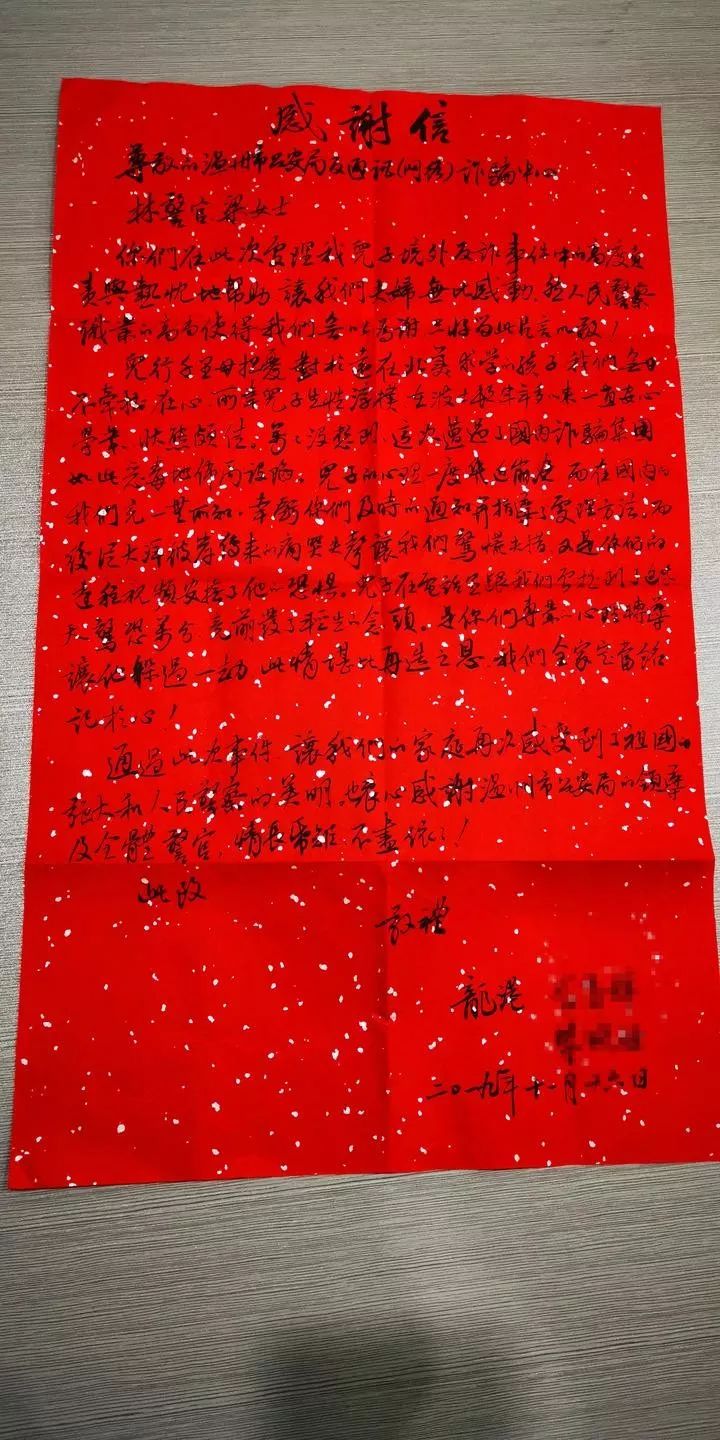 感謝信
尊敬的温州市公安局反通讯(网络)诈骗中心
林警官 梁女士
你們在此次處理我兒子境外反诈事件中的高度負
責與熱忱地帮助 讓我們夫婦無比感動 人民警察
職業的高尚使得我們無以為謝 特留此片言以致!
兒行千里母担憂 對於遠在北美求学的孩子我們無日
不牽掛在心 兒子生性淳樸 在波士 年多以来一直安心
學業 狀態頗佳。萬萬没想到,這次遭遇了國内诈騙集團
如此惡毒地佈局设陷。兒子的心理一度幾近崩潰 而在國内的
我們完一無所知 幸虧你們及時的通知并指導了處理方法 而
後從大洋彼岸傳来的痛哭失聲讓我們驚慌失措 又是你們的
遠程视频安撫了他的恐惧。兒子在電話里跟我們 到了這
天驚恐萬分 竟萌發了轻生的念頭。是你們專業的心理博導
讓他躲過一劫 此情堪比再造之恩 我們全家定當銘
記於心!
通過此次事件 讓我們的家庭再次感受到了祖國的
強大和人民警察的英明。衷心感謝温州市公安局的領導
及全體警官,情長紙短 不盡依依!
此致
敬禮
龍港
二〇一九年十一月十六日